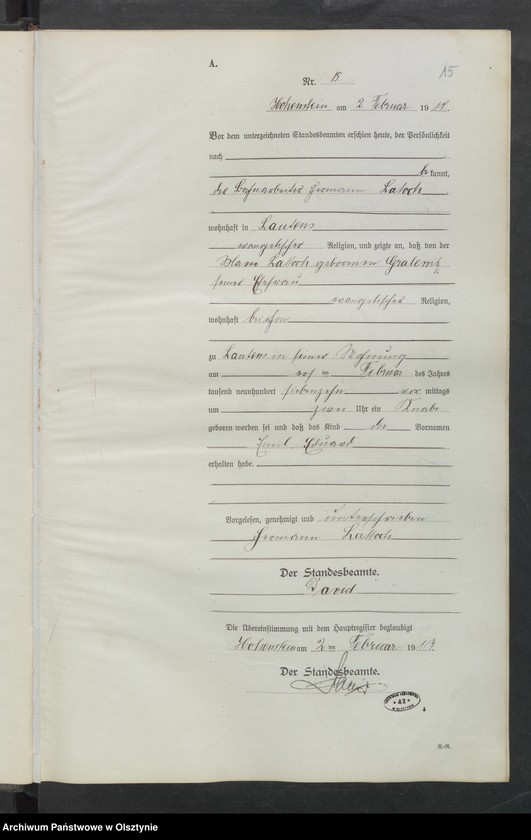 A.
15
Nr. 15
Hohenstein am 2 Februar 1917.
Vor dem unterzeichneten Standesbeamten erschien heute, der Persönlichkeit
nach
be kannt,
der Bahnarbeiter Hermann Latoch
wohnhaft in Lautens
evangelischer Religion, und zeigte an, daß von der
Latoch geborenen
seiner Ehefrau
evangelischer Religion,
wohnhaft bei ihm
zu Lautens in seiner Wohnung
am Februar des Jahres
tausend neunhundert siebenzehn vor mittags
um zwei Uhr ein Knabe
geboren worden sei und daß das Kind die Vornamen
Emil Eduard
erhalten habe.
Vorgelesen, genehmigt und unterschrieben
Hermann Latoch
Der Standesbeamte.
David
Die Übereinstimmung mit dem Hauptregister beglaubigt
Hohenstein am 2 ten Februar 1917.
Der Standesbeamte.
David
* A2 *
R.-R.
Archiwum Państwowe w Olsztynie